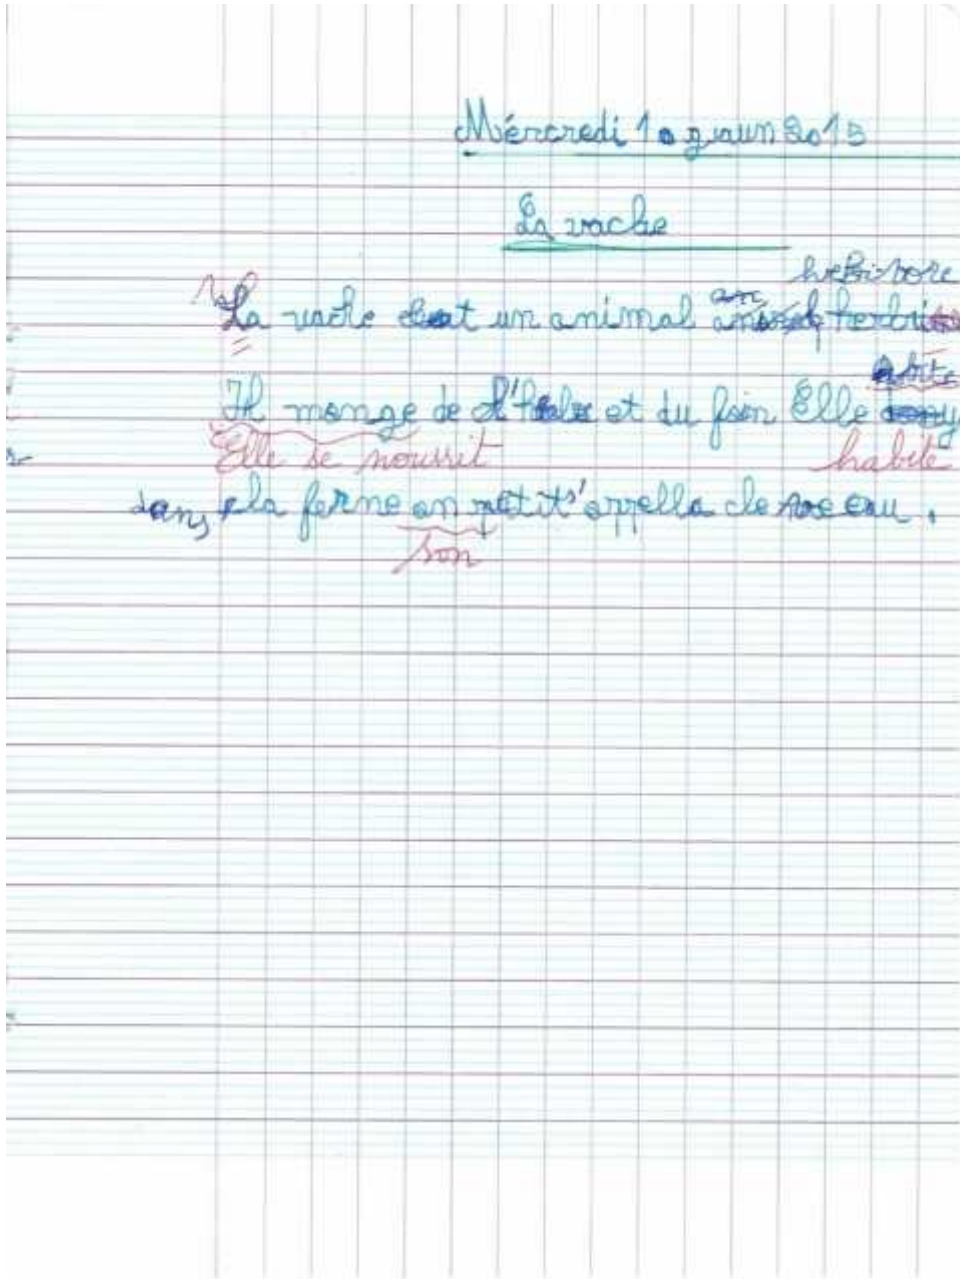 Mércredi 10 juin 2015
La vache
herbivore
La vache est un animal an herbi
abite
Il mange de l'herbe et du foin Elle
Elle se nourrit habite
dans la ferme on petit s'appella le veau.
son